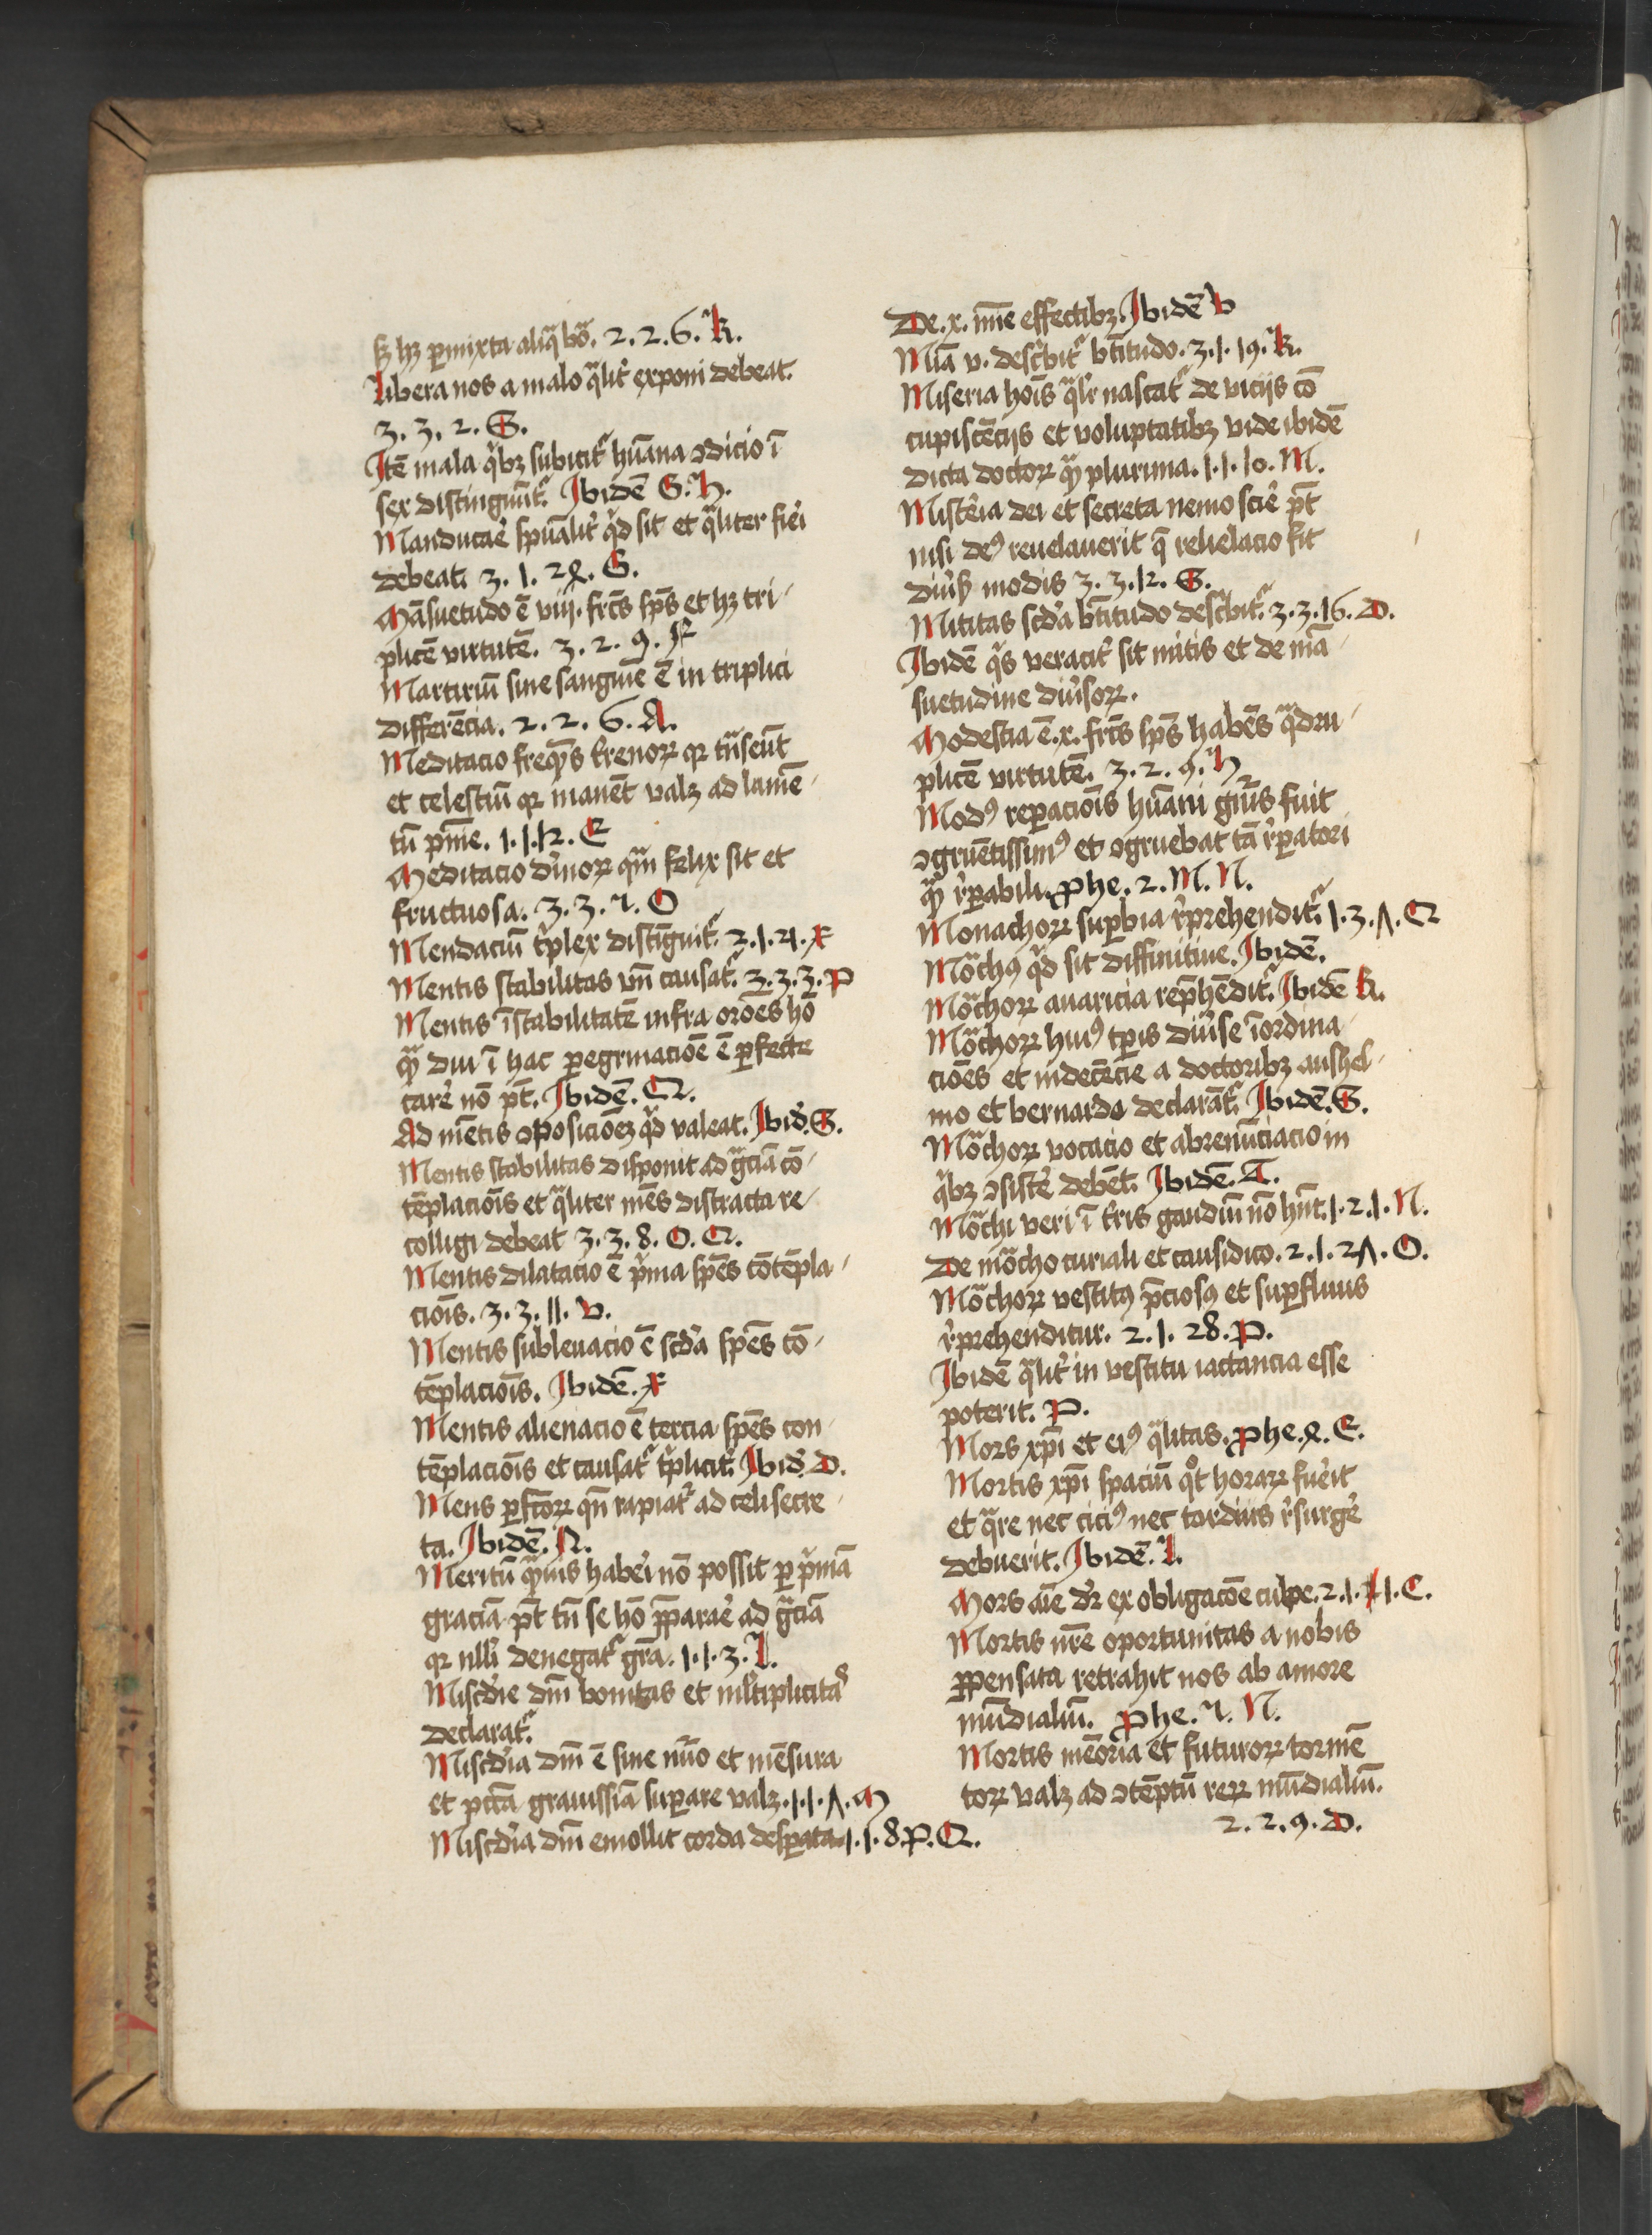 sꝫ hꝫ ꝑmixta aliqͣ bōa. 2. 2. 6. K.
Libera nos a malo qͣlit᷑ exponi debeat.
3. 3. 2. G.
Itē mala qͥbꝫ subicit᷑ hūana ↄdicio ī
sex distingnūt᷑. Ibidē G. H.
Manducar̄e spūalit᷑ qͥd sit et qͣliter fie᷑i
debeat. 3. 1. 2ꝭ. G.
Māsuetudo ē viij. frc̄s sp̄s et hꝫ tri-
plicē virtutē. 3. 2. 9. F
Martiriū sine sangui᷑e ē in triplici
differēcia. 2. 2. 6. A.
Meditacio freqn̄s t᷑renoꝝ qꝛ tͣnseūt
et celestiū qꝛ manēt valꝫ ad lamē-
tū pn̄ie. 1. 1. 12. E
Meditacio diu᷑noꝝ qͣm felix sit et
fructuosa. 3. 3. 7. O
Mendaciū tͥplex distīguit᷑. 3. 1. 21. X
Mentis stabilitas vn̄ causat᷑. 3. 3. 3. P
Mentis īstabilitatē infra or̄oēs hō
qͣꝫ diu ī hac peregrinacioē ē ꝑfecte
care᷑ nō pt̄. Ibidē. Q.
Ad mētis ↄposicioēꝫ qͥd valeat. Ibid᷑. G.
Mentis stabilitas disponit ad gͣciā cō-
tēplaciōis et qͣliter mēs distracta re-
colligi debeat 3. 3. 8. O. Q.
Mentis dilatacio ē pͥma sp̄ēs cōtēpla-
cioīs. 3. 3. 11. V.
Mentis subleuacio ē scd̄a sp̄ēs cō-
tēplacioīs. Ibidē. X
Mentis alienacio ē tercia sp̄ēs con-
tēplacioīs et causat᷑ tͥplicit᷑. Ibid᷑. D.
Mens ꝑfcōꝝ qn̄ rapiat᷑ ad celi secre-
ta. Ibidē. N.
Meritū qͣmͥs habe᷑i nō possit ꝑ pͥmā
graciā pt̄ tn̄ se hō p̄ꝑara᷑e ad gͣciā
qꝛ nlli᷑ denegat᷑ gr̄a. 1. 1. 3. I.
Misc̄die dm̄ bonitas et ml̄tiplicitas
declarat᷑.
Misc̄dia dm̄ ē sine nūo et mēsura
et pcc̄ā grauissīa suꝑare valꝫ. 1. 1. Λ. M
Misc̄dia dm̄ emollit corda desꝑata. 1. 1. 8. P. Q.
De. x. mīe effectibꝫ. Ibidē V
Mīa v. descͥbit᷑ bt̄itudo. 3. 1. 19. K.
Miseria hoīs qͣlr᷑ nascat᷑ de vicijs cō
cupiscēcijs et voluptatibꝫ vide ibidē
dicta doctoꝝ qͣꝫ plurima. 1. 1. 10. M.
Miste᷑ia dei et secreta nemo scire᷑ pt̄
nisi deꝰ reuelauerit q̄ reuelacio fit
diu᷑s modis 3. 3. 12. G.
Mititas scd̄a bt̄itudo descͥbit᷑. 3. 3. 16. D.
Ibidē qͥs veracit᷑ sit mitis et de mā-
suetudine diu᷑soꝝ.
Modestia ē. x. frc̄s sp̄s habēs qͣdru-
plicē virtutē. 3. 2. 9. H
Modꝰ reꝑacioīs hūani gn̄is fuit
ↄgruētissimꝰ et ↄgruebat tā r᷑ꝑatori
qͣꝫ r᷑ꝑabili. Phe. 2. M. N.
Monachoꝝ suꝑbia r᷑prehendit᷑. 1. 3. Λ. Q
Mōchꝰ qͥd sit diffinitiue. Ibidē.
Mōchoꝝ auaricia rep̄hēdit᷑. Ibidē K.
Mōchoꝝ huiꝰ tꝑis diu᷑se īordina-
cioēs et indecēcie a doctoribꝫ anshel-
mo et bernardo declarāt᷑. Ibidē. G.
Mōchoꝝ vocacio et abrenūciacio in
qͥbꝫ ↄsiste᷑ debēt. Ibidē. T.
Mōchi veri ī t᷑ris gaudiū nō hn̄t. 1. 2. 1. N.
De mōcho curiali et causidico. 2. 1. 2Λ. O.
Mōchoꝝ vestitꝰ p̄ciosꝰ et suꝑfluus
r᷑prehenditur. 2. 1. 28. P.
Ibidē qͣlit᷑ in vestitu iactancia esse
poterit. P.
Mors xp̄i et eiꝰ qͣlitas. Phe. ꝭ. E.
Mortis xp̄i spaciū qͦt horaꝝ fue᷑it
et qͣre nec ciciꝰ nec tardius r᷑surge᷑
debuerit. Ibidē. I.
Mors aīe dr̄ ex obligacōe culpe. 2. 1. 21. C.
Mortis nr̄e oportunitas a nobis
p̄pensata retrahit nos ab amore
mūdialiū. Phe. 7. N.
Mortis mēoria et futuroꝝ tormē
toꝝ valꝫ ad ↄtēptū reꝝ mūdialiū.
2. 2. 9. D.